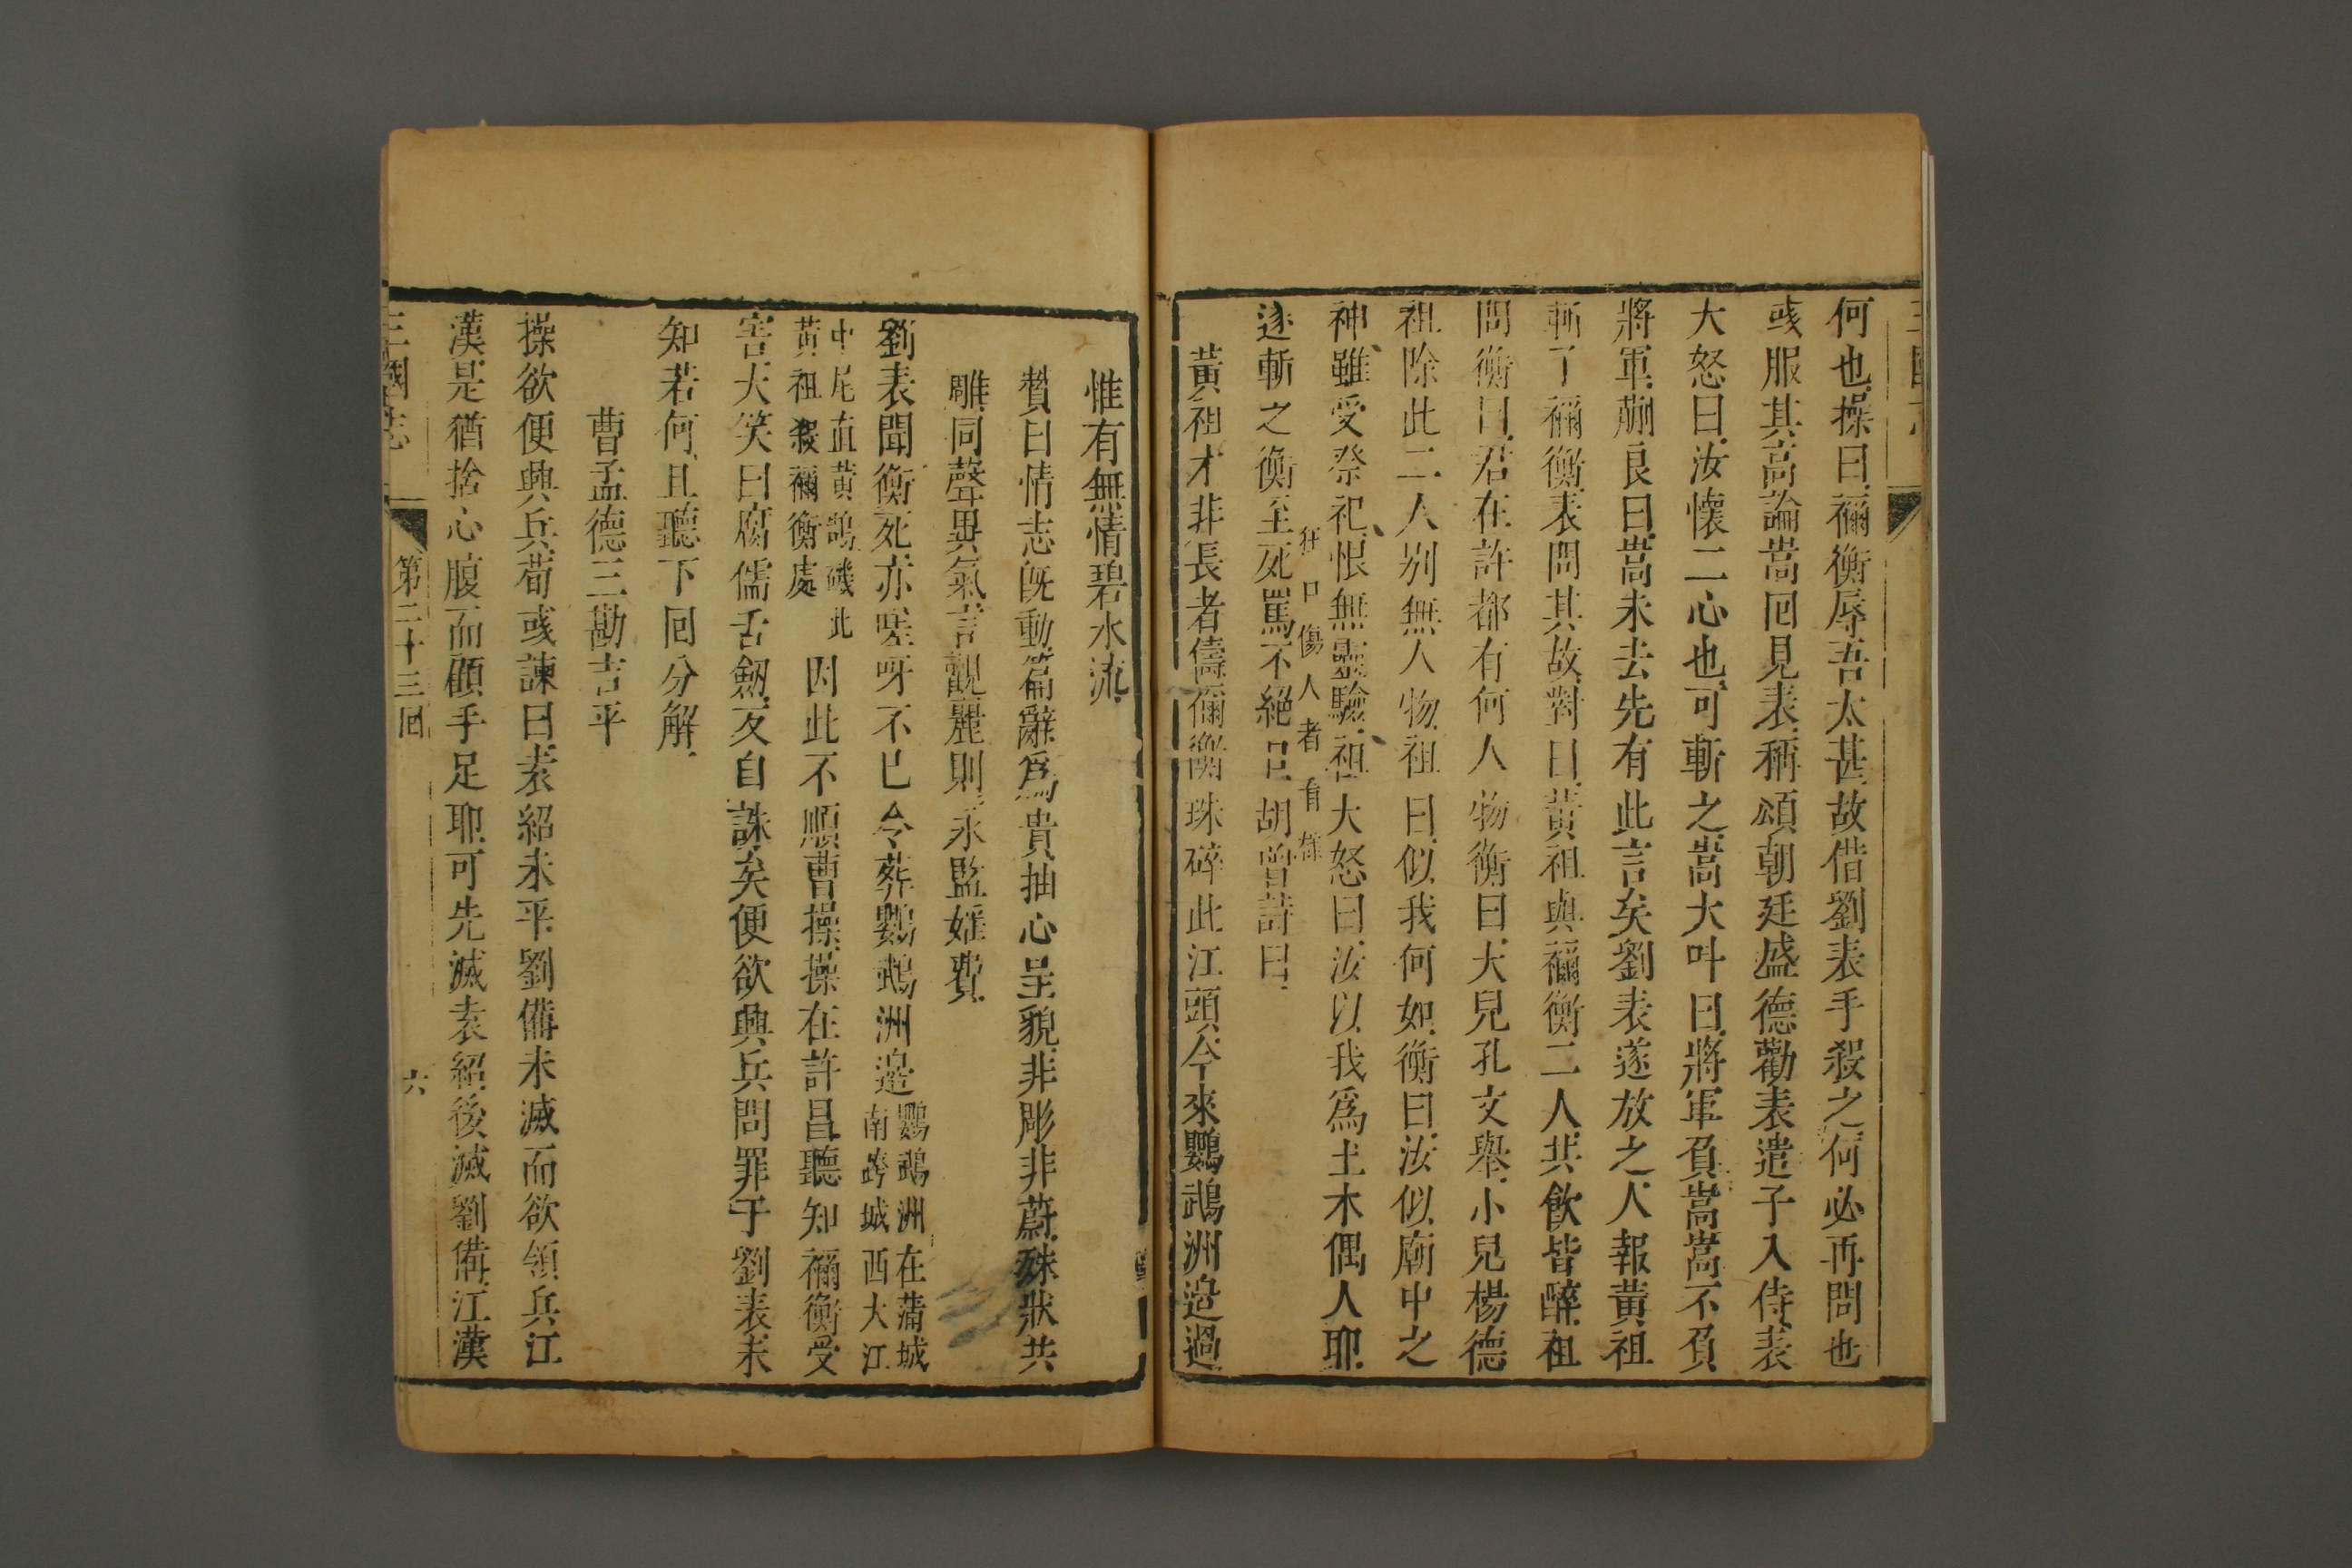 何也操曰禰衡辱吾太甚故借劉表手殺之何必再問也
彧服其高論嵩回見表稱頌朝廷盛德勸表遣子入侍表
大怒曰汝懷二心也可斬之嵩大叫曰將軍負嵩嵩不負
將軍蒯良曰嵩未去先有此言矣劉表遂放之人報黃祖
斬了禰衡表問其故對曰黃祖與禰衡二人共飲皆醉祖
問衡曰君在許都有何人物衡曰大兒孔文舉小兒楊德
祖除此二人别無人物祖曰似我何如衡曰汝似廟中之
神雖受祭祀恨無靈驗祖大怒曰汝以我爲土木偶人耶
狂口傷人者看樣
遂斬之衡至死罵不絕口胡曾詩曰
黃祖才非長者儔禰衡珠碎此江頭今來鸚鵡洲邉過
惟有無情碧水流
贊曰情志旣動篇辭爲貴抽心呈貌非彫非蔚殊狀共
雕同聲異氣言觀麗則永監婬費
劉表聞衡死亦嗟呀不已令葬鸚鵡洲邉鸚鵡洲在蒲城
南跨城西大江
中尾直黃鵠磯北
黃祖殺禰衡處因此不順曹操操在許昌聽知禰衡受
害大笑曰腐儒舌劒反自誅矣便欲興兵問罪于劉表未
知若何且聽下回分解
曹孟德三勘吉平
操欲便興兵荀彧諫曰袁紹未平劉備未滅而欲領兵江
漢是猶捨心腹而顧手足耶可先滅袁紹後滅劉備江漢
三國志
第二十三回
六